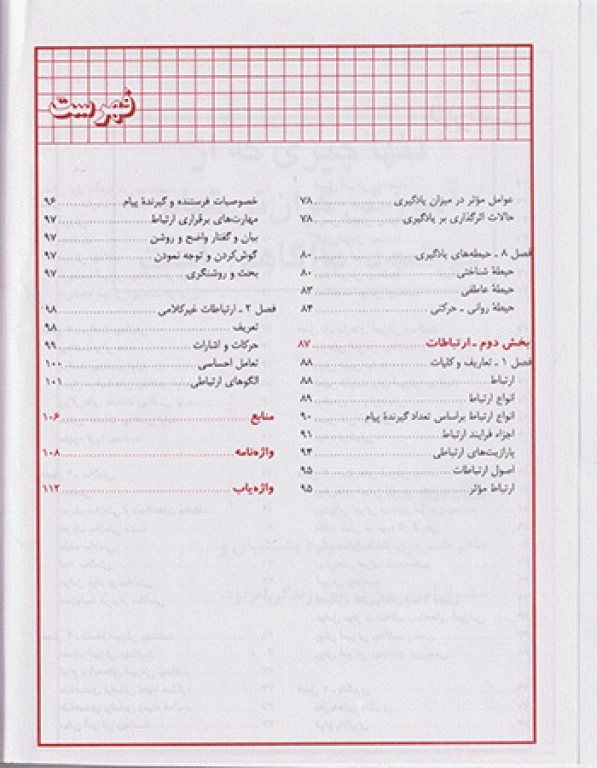 فهرست
عوامل مؤثر در میزان یادگیری ........ ۷۸
حالات اثرگذاری بر یادگیری ........ ۷۸
فصل ۸ ـ حیطه‌های یادگیری ........ ۸۰
حیطهٔ شناختی ........ ۸۰
حیطهٔ عاطفی ........ ۸۳
حیطهٔ روانی ـ حرکتی ........ ۸۴
بخش دوم ـ ارتباطات ........ ۸۷
فصل ۱ ـ تعاریف و کلیات ........ ۸۸
ارتباط ........ ۸۸
انواع ارتباط ........ ۸۹
انواع ارتباط براساس تعداد گیرندهٔ پیام ........ ۹۰
اجزاء فرایند ارتباط ........ ۹۱
پارازیت‌های ارتباطی ........ ۹۴
اصول ارتباطات ........ ۹۵
ارتباط مؤثر ........ ۹۵
خصوصیات فرستنده و گیرندهٔ پیام ........ ۹۶
مهارت‌های برقراری ارتباط ........ ۹۷
بیان و گفتار واضح و روشن ........ ۹۷
گوش‌کردن و توجه نمودن ........ ۹۷
بحث و روشنگری ........ ۹۷
فصل ۲ ـ ارتباطات غیرکلامی ........ ۹۸
تعریف ........ ۹۸
حرکات و اشارات ........ ۹۹
تعامل احساسی ........ ۱۰۰
الگوهای ارتباطی ........ ۱۰۱
منابع ........ ۱۰۶
واژه‌نامه ........ ۱۰۸
واژه‌یاب ........ ۱۱۲